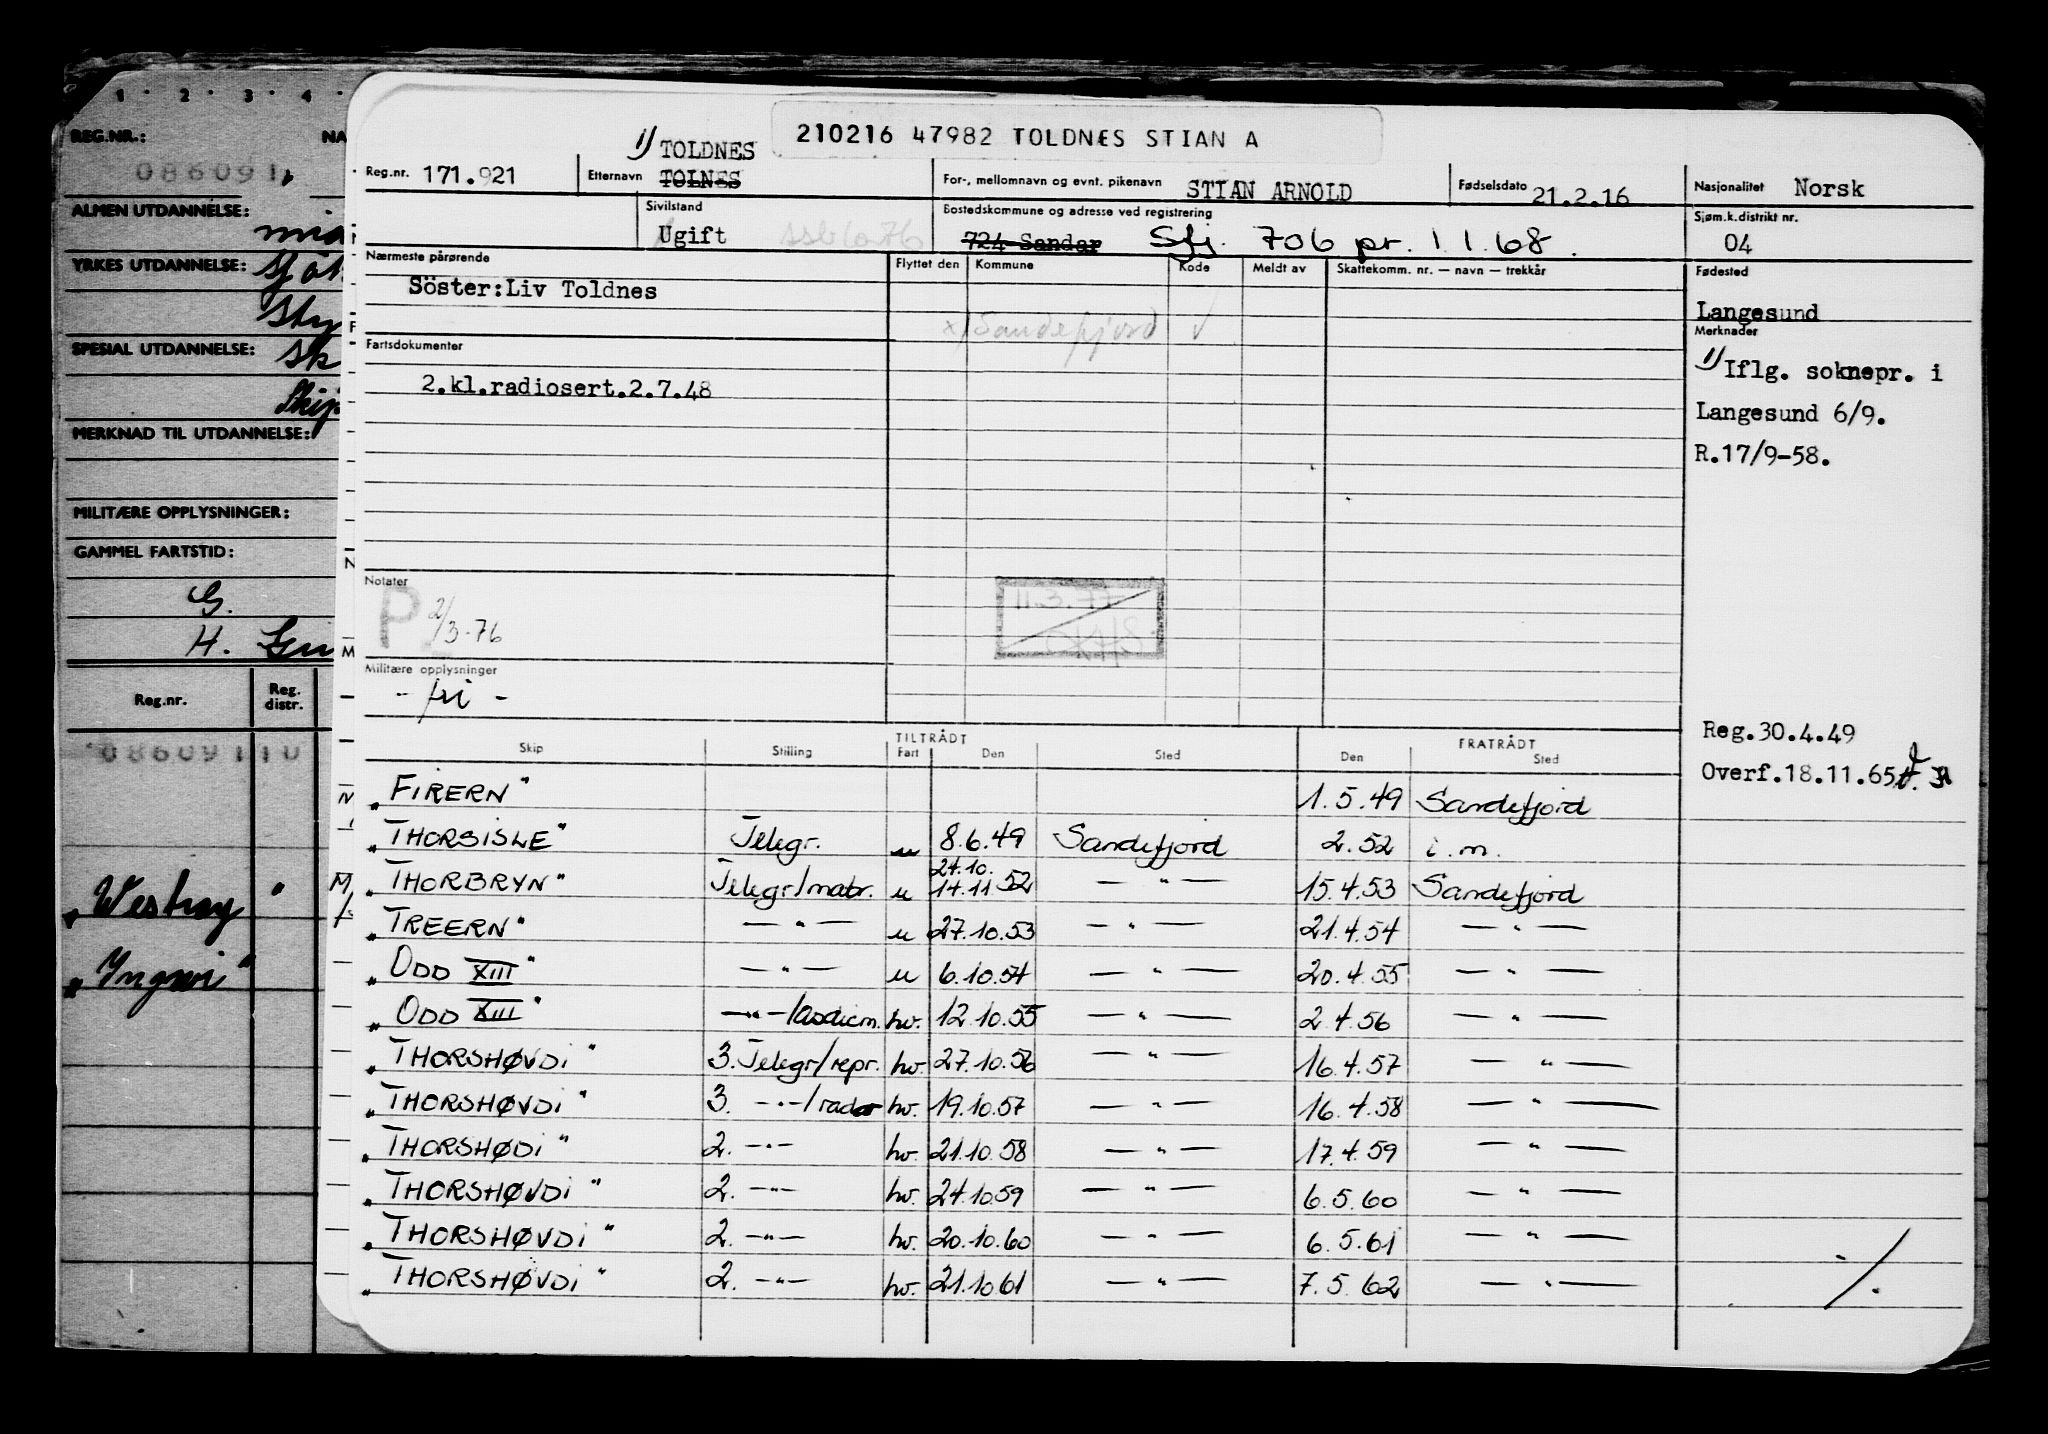 1 · 2 · 3 · 4 ·
REG.NR.: NA
086091
ALMEN UTDANNELSE:
YRKES UTDANNELSE:
SPESIAL UTDANNELSE:
MERKNAD TIL UTDANNELSE:
MILITÆRE OPPLYSNINGER:
GAMMEL FARTSTID:
G.
H.
Reg.nr. Reg. distr.
08609110
"Westray"
"Ingwi"
210216 47982 TOLDNES STIAN A
1) TOLDNES
Reg.nr. 171.921 Etternavn TOLNES For-, mellomnavn og evnt. pikenavn STIAN ARNOLD Fødselsdato 21.2.16 Nasjonalitet Norsk
Sivilstand Ugift Bostedskommune og adresse ved registrering 724 Sandar Sfj. 706 pr. 1.1.68. Sjøm.k.distrikt nr. 04
Nærmeste pårørende Flyttet den Kommune Kode Meldt av Skattekomm. nr. — navn — trekkår Fødested
Söster:Liv Toldnes Langesund
x) Sandefjord √
Merknader
1) Iflg. soknepr. i
Langesund 6/9.
R.17/9-58.
Fartsdokumenter
2.kl.radiosert.2.7.48
Notater
P 2/3-76
11.3.77
Militære opplysninger
- fri -
Reg.30.4.49
Overf.18.11.65
TILTRÅDT FRATRÅDT
Skip Stilling Fart Den Sted Den Sted
"FIRERN" 1.5.49 Sandefjord
"THORSISLE" Telegr. u 8.6.49 Sandefjord 2.52 i.m.
"THORBRYN" Telegr/matr. u 24.10. 14.11 52 — " — 15.4.53 Sandefjord
"TREERN" — " — u 27.10.53 — " — 21.4.54 — " —
"ODD XIII" — " — u 6.10.54 — " — 20.4.55 — " —
"ODD XIII" — " —/asdicm. hv. 12.10.55 — " — 2.4.56 — " —
"THORSHØVDI" 3. Telegr/repr. hv. 27.10.56 — " — 16.4.57 — " —
"THORSHØVDI" 3. — " —/radar hv. 19.10.57 — " — 16.4.58 — " —
"THORSHØDI" 2. — " — hv. 21.10.58 — " — 17.4.59 — " —
"THORSHØVDI" 2. — " — hv. 24.10.59 — " — 6.5.60 — " —
"THORSHØVDI" 2. — " — hv. 20.10.60 — " — 6.5.61 — " —
"THORSHØVDI" 2. — " — hv. 21.10.61 — " — 7.5.62 — " —
./.